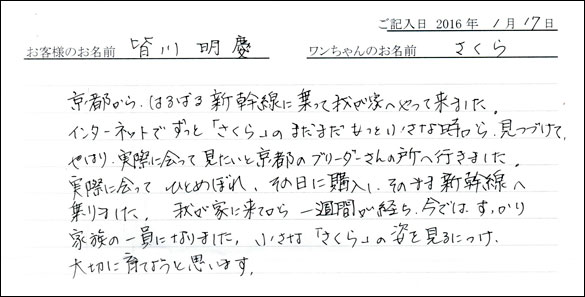 ご記入日 2016年 1月 17日
お客様のお名前 皆川 明慶 ワンちゃんのお名前 さくら
京都から、はるばる新幹線に乗って我が家へやって来ました。
インターネットでずっと「さくら」のまだまだもっと小さな時から、見つづけて、
やはり、実際に会って見たいと京都のブリーダーさんの所へ行きました。
実際に会って ひとめぼれ、その日に購入し、そのまま新幹線へ
乗りました。 我が家に来てから 一週間が経ち、今では、すっかり
家族の一員になりました。小さな「さくら」の姿を見るにつけ、
大切に育てようと思います。